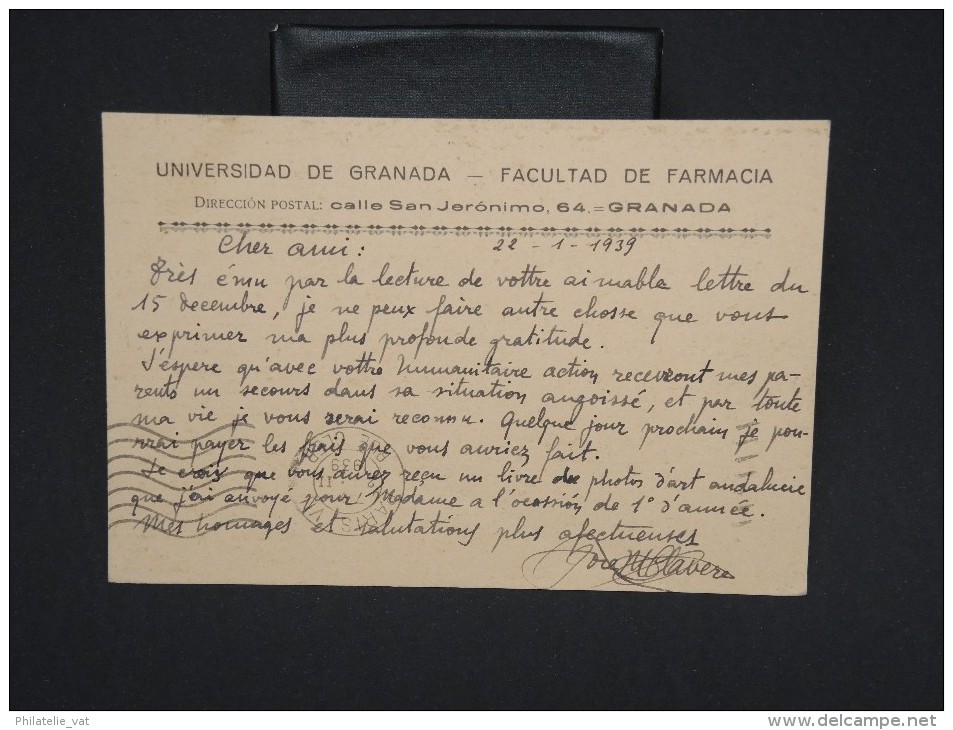 UNIVERSIDAD DE GRANADA — FACULTAD DE FARMACIA
DIRECCIÓN POSTAL: calle San Jerónimo, 64.=GRANADA
Cher ami: 22-1-1939
Très ému par la lecture de vottre aimable lettre du
15 decembre, je ne peux faire autre chosse que vous
exprimer ma plus profonde gratitude.
J'éspere qu'avec vottre humanitaire action receveront mes pa-
rents un secours dans sa situation angoissé, et par toute
ma vie je vous serai reconnu. Quelque jour prochain je pou-
rrai payer les frais que vous auriez fait.
Je crois que vous aurez reçu un livre de photos d'art andalucie
que j'ai envoyé pour Madame a l'ocossión de 1º d'année.
Mes homages et salutations plus afectueuses
Jose M Clavera
Philatelie_vat
www.delcampe.net